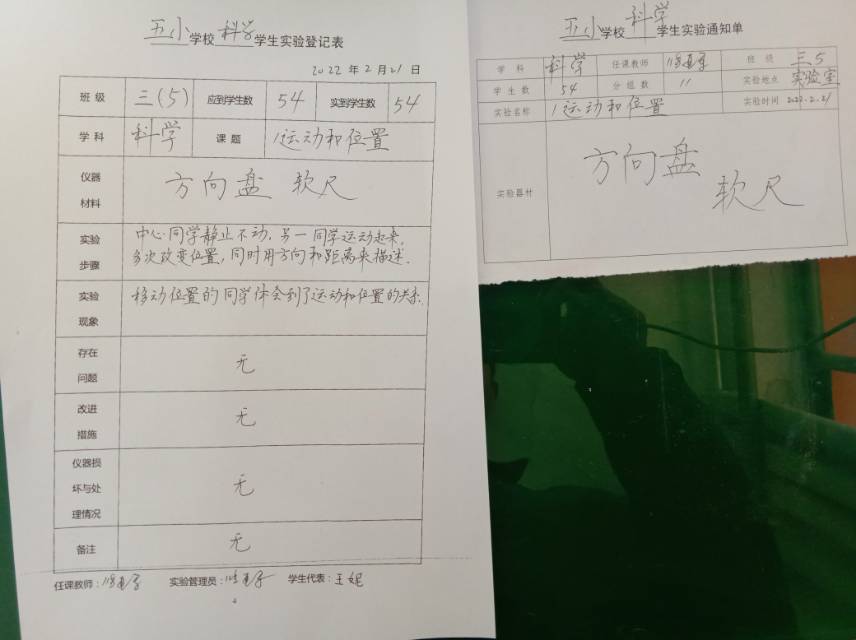 五小学校科学学生实验登记表
2022年2月21日
班级 三(5) 应到学生数 54 实到学生数 54
学科 科学 课题 1运动和位置
仪器材料 方向盘 软尺
实验步骤 中心同学静止不动,另一同学运动起来,
多次改变位置,同时用方向和距离来描述.
实验现象 移动位置的同学体会到了运动和位置的关系.
存在问题 无
改进措施 无
仪器损坏与处理情况 无
备注 无
任课教师: 实验管理员: 学生代表:王妮
五小学校科学学生实验通知单
学科 科学 任课教师 班级 三.5
学生数 54 分组数 11 实验地点 实验室
实验名称 1运动和位置 实验时间 2022.2.21
实验器材 方向盘
软尺